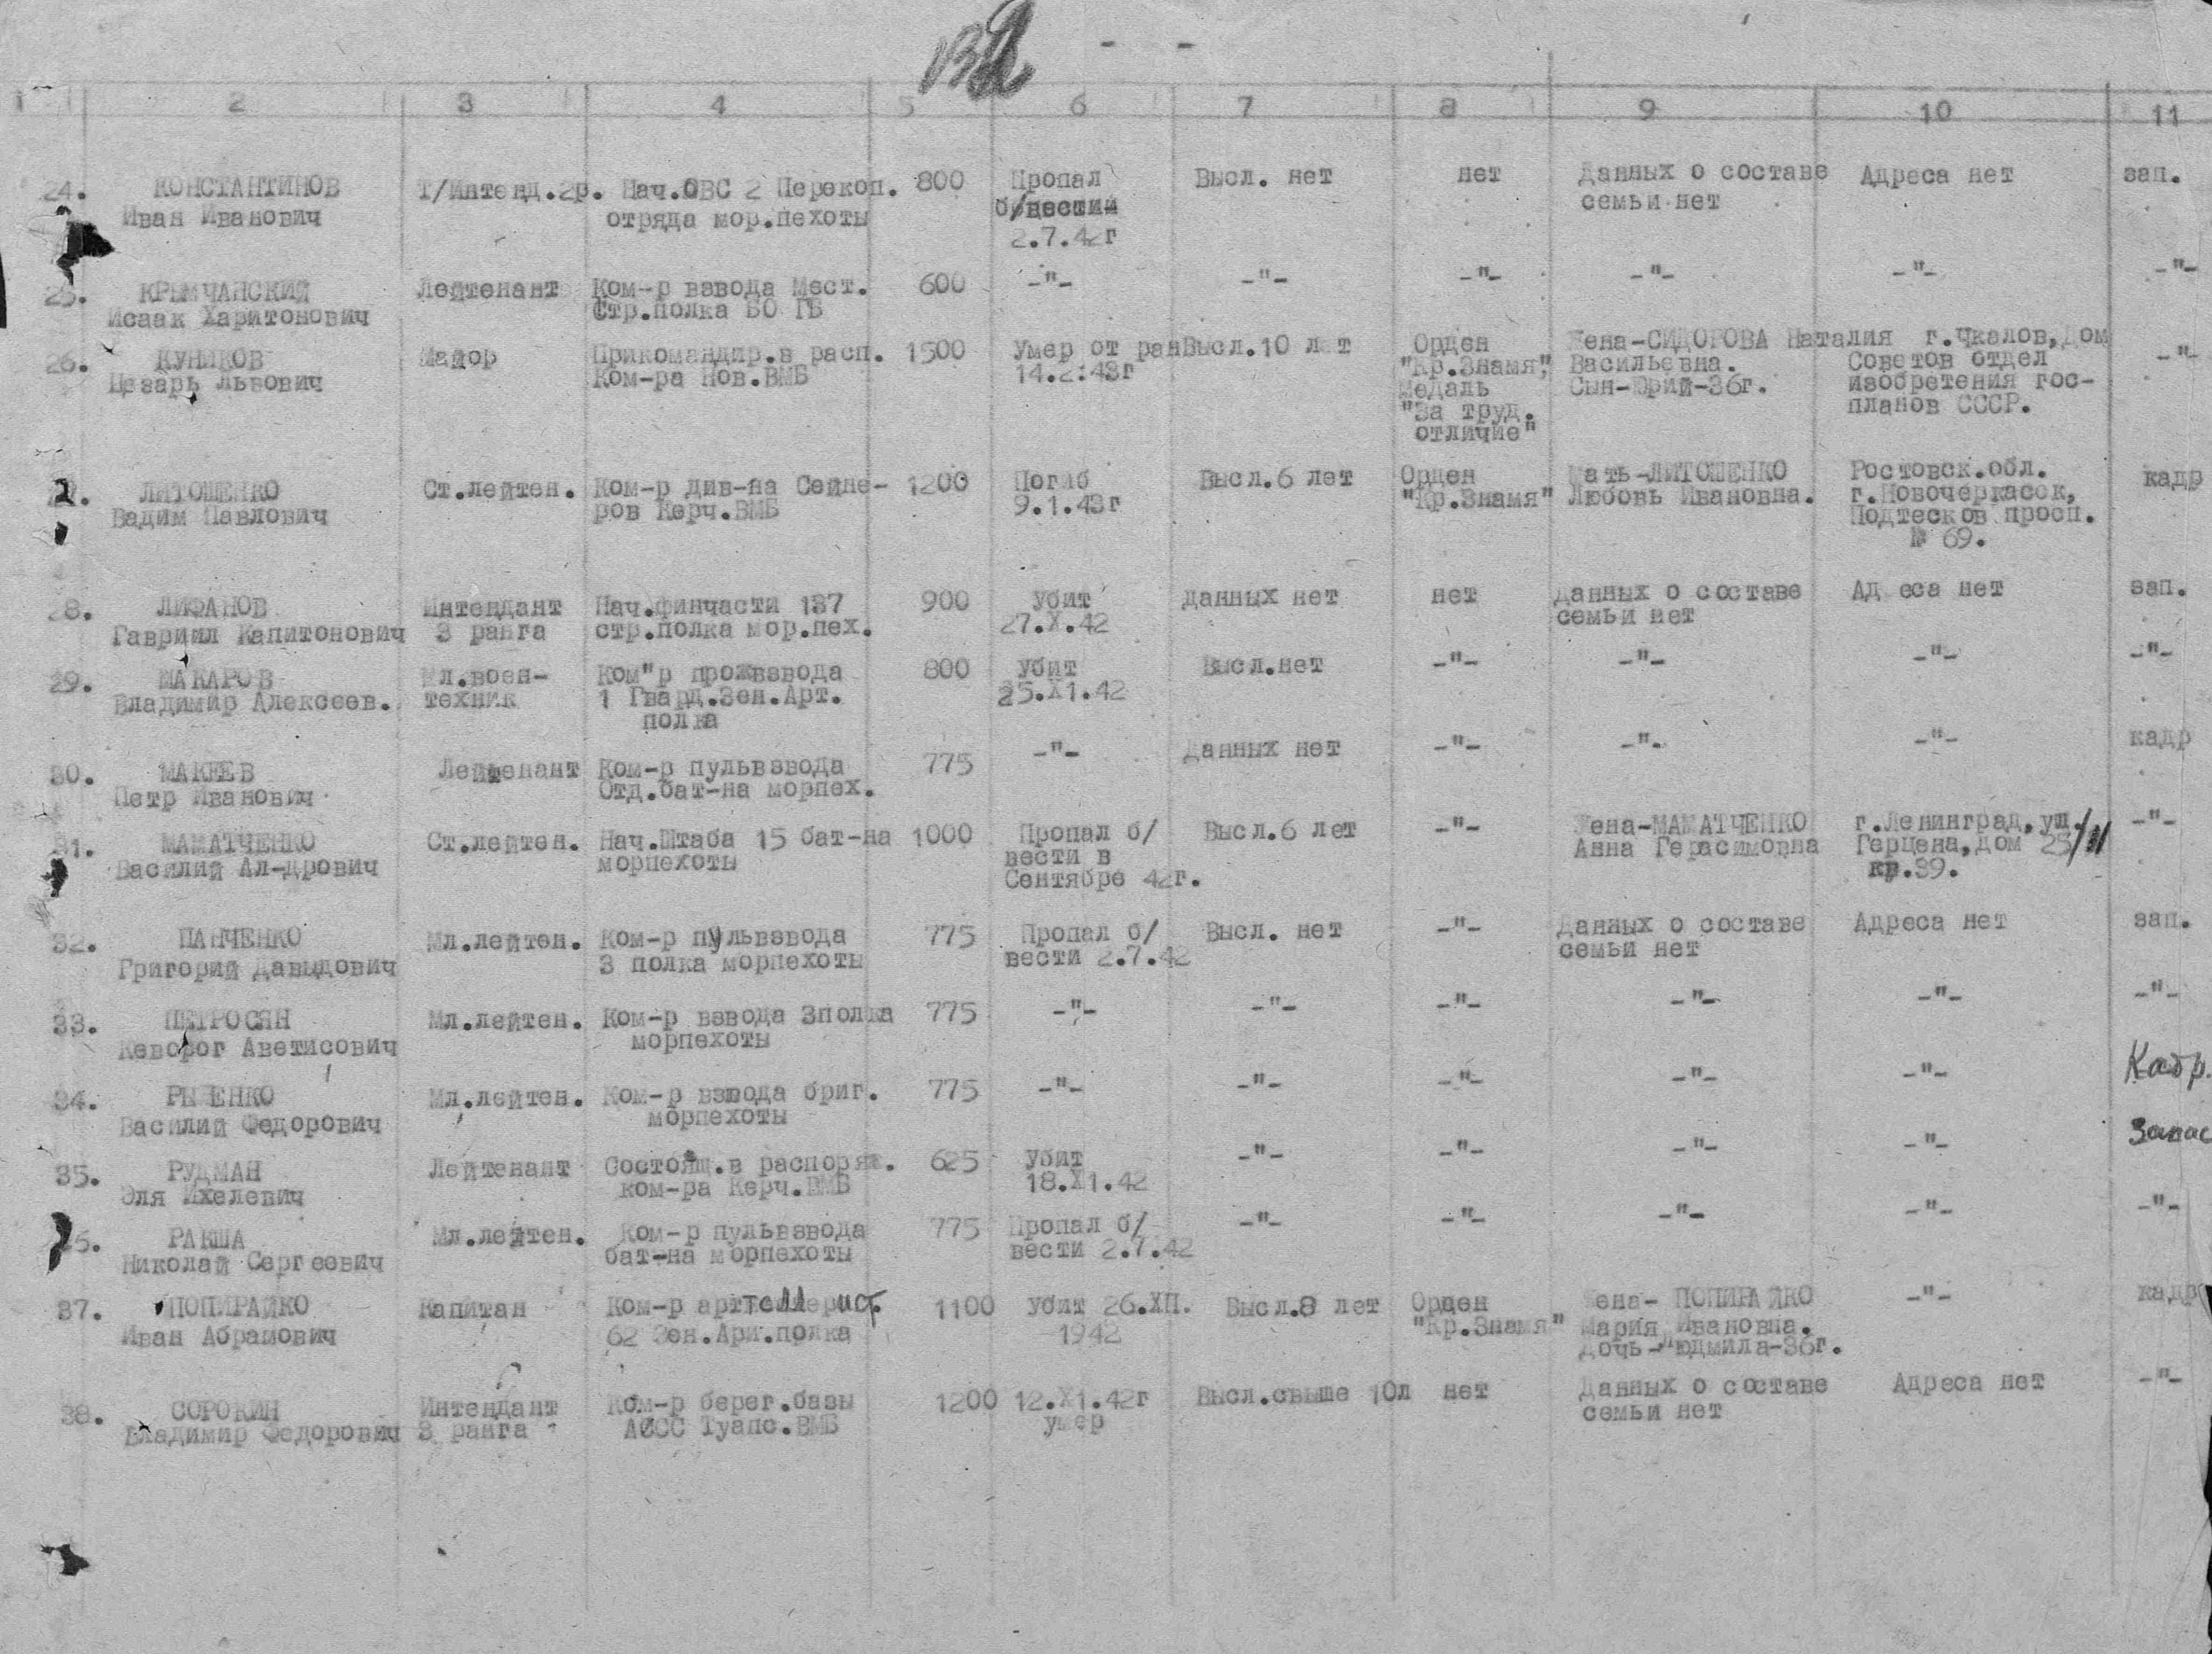 - -
1 2 3 4 5 6 7 8 9 10 11
24. КОНСТАНТИНОВ Т/Интенд.2р. Нач.ОВС 2 Перекоп. 800 Пропал Высл. нет нет Данных о составе Адреса нет зап.
Иван Иванович отряда мор.пехоты б/вести семьи нет
2.7.42г
25. КРЫМЧАНСКИЙ Лейтенант Ком-р взвода Мест. 600 -"- -"- -"- -"- -"- -"-
Исаак Харитонович Стр.полка БО ГБ
26. КУНИКОВ Майор Прикомандир.в расп. 1500 Умер от ран Высл.10 лет Орден Жена-СИДОРОВА Наталия г.Чкалов,Дом -"-
Цезарь Львович Ком-ра Нов.ВМБ 14.2.43г "Кр.Знамя", Васильевна. Советов отдел
Медаль Сын-Юрий-36г. изобретения гос-
"За труд. планов СССР.
отличие"
ЛИТОШЕНКО Ст.лейтен. Ком-р див-на Сейне- 1200 Погиб Высл.6 лет Орден Мать-ЛИТОШЕНКО Ростовск.обл. кадр
Вадим Павлович ров Керч.ВМБ 9.1.43г "Кр.Знамя" Любовь Ивановна. г.Новочеркасск,
Подтесков просп.
№ 69.
28. ЛИФАНОВ Интендант Нач.финчасти 137 900 убит данных нет нет данных о составе Ад еса нет зап.
Гавриил Капитонович 3 ранга стр.полка мор.пех. 27.X.42 семьи нет
29. МАКАРОВ Мл.воен- Ком"р прожвзвода 800 убит Высл.нет -"- -"- -"- -"-
Владимир Алексеев. техник 1 Гвард.Зен.Арт. 25.X1.42
полка
30. МАКЕЕВ Лейтенант Ком-р пульвзвода 775 -"- Данных нет -"- -"- -"- кадр
Петр Иванович Отд.бат-на морпех.
31. МАМАТЧЕНКО Ст.лейтен. Нач.Штаба 15 бат-на 1000 Пропал б/ Высл.6 лет -"- Жена-МАМАТЧЕНКО г.Ленинград,ул. -"-
Василий Ал-дрович морпехоты вести в Анна Герасимовна Герцена,дом 25/11
Сентябре 42г. кв.39.
32. ПАНЧЕНКО Мл.лейтен. Ком-р пульвзвода 775 Пропал б/ Высл. нет -"- Данных о составе Адреса нет зап.
Григорий Давыдович 3 полка морпехоты вести 2.7.42 семьи нет
33. ПЕТРОСЯН Мл.лейтен. Ком-р взвода 3полка 775 -"- -"- -"- -"- -"- -"-
Кеворог Аветисович морпехоты
34. РЫ ЕНКО Мл.лейтен. Ком-р взвода бриг. 775 -"- -"- -"- -"- -"- Кадр.
Василий Федорович морпехоты
35. РУДМАН Лейтенант Состоящ.в распоряж. 625 убит -"- -"- -"- -"- Запас
Эля Ихелевич ком-ра Керч.ВМБ 18.X1.42
РАКША Мл.лейтен. Ком-р пульвзвода 775 Пропал б/ -"- -"- -"- -"- -"-
Николай Сергеевич бат-на морпехоты вести 2.7.42
37. ПОПИРАЙКО Капитан Ком-р 1100 убит 26.XП. Высл.8 лет Орден Жена- ПОПИРАЙКО -"- кадр
Иван Абрамович 62 Зен.Арт.полка 1942 "Кр.Знамя" Мария Ивановна.
Дочь-Людмила-36г.
38. СОРОКИН Интендант Ком-р берег.базы 1200 12.X1.42г Высл.свыше 10л нет Данных о составе Адреса нет -"-
Владимир Федорович 3 ранга АССС Туапс.ВМБ умер семьи нет